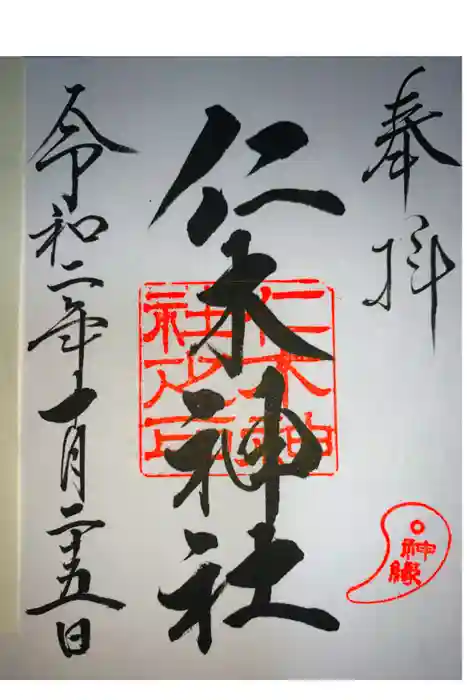 奉拝
仁木神社
仁木神社之印
神縁
令和二年十月二十五日